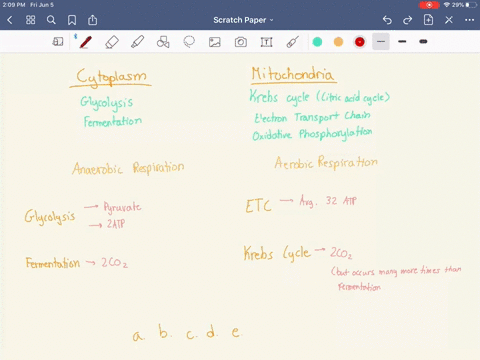 2:09 PM Fri Jun 5
29%
Scratch Paper
Cytoplasm
Glycolysis
Fermentation
Anaerobic Respiration
Glycolysis → Pyruvate
→ 2ATP
Fermentation → 2CO2
Mitochondria
Krebs cycle (Citric acid cycle)
Electron Transport Chain
Oxidative Phosphorylation
Aerobic Respiration
ETC → Avg. 32 ATP
Krebs Cycle → 2CO2
(but occurs many more times than
Fermentation
a. b. c. d. e.